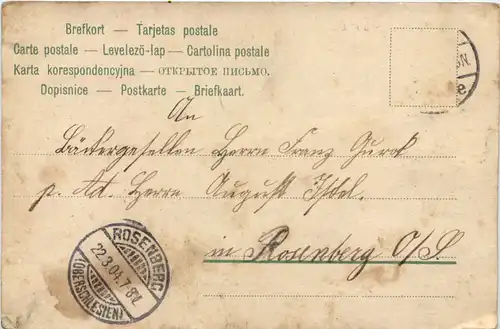 Brefkort — Tarjetas postale
Carte postale — Levelező-lap — Cartolina postale
Karta korespondencyjna — ОТКРЫТОЕ ПИСЬМО.
Dopisnice — Postkarte — Briefkaart.
An
Bäckergesellen Herrn Franz Gurok
p. Ad. Herrn August
in Rosenberg O/S.
ROSENBERG
22.3.04.7-8V.
(OBERSCHLESIEN)